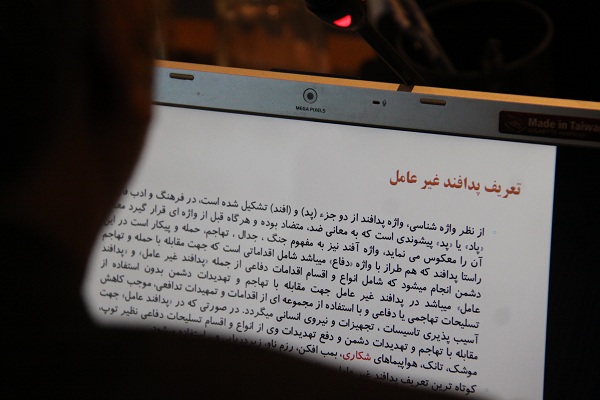 MEGA PIXELS
Made in Taiwa
تعریف پدافند غیر عامل
از نظر واژه شناسی، واژه پدافند از دو جزء (پد) و (افند) تشکیل شده است، در فرهنگ و ادب
«پاد» یا «پد» پیشوندی است که به معانی ضد، متضاد بوده و هرگاه قبل از واژه ای قرار گیرد
آن را معکوس می نماید، واژه آفند نیز به مفهوم جنگ ، جدال ، تهاجم، حمله و پیکار است در این
راستا پدافند که هم طراز با واژه «دفاع» میباشد شامل اقداماتی است که جهت مقابله با حمله و تهاجم
دشمن انجام میشود که شامل انواع و اقسام اقدامات دفاعی از جمله «پدافند غیر عامل» و «پدافند
عامل» میباشد در پدافند غیر عامل جهت مقابله با تهاجم و تهدیدات دشمن بدون استفاده از
تسلیحات تهاجمی یا دفاعی و با استفاده از مجموعه ای از اقدامات و تمهیدات تدافعی، موجب کاهش
آسیب پذیری تاسیسات ، تجهیزات و نیروی انسانی میگردد. در صورتی که در «پدافند عامل» جهت
مقابله با تهاجم و تهدیدات دشمن و دفع تهدیدات وی از انواع و اقسام تسلیحات دفاعی نظیر توپ،
موشک، تانک، هواپیماهای شکاری، بمب افکن، رزم ناو،
کوتاه ترین تعریف پدافند غیر